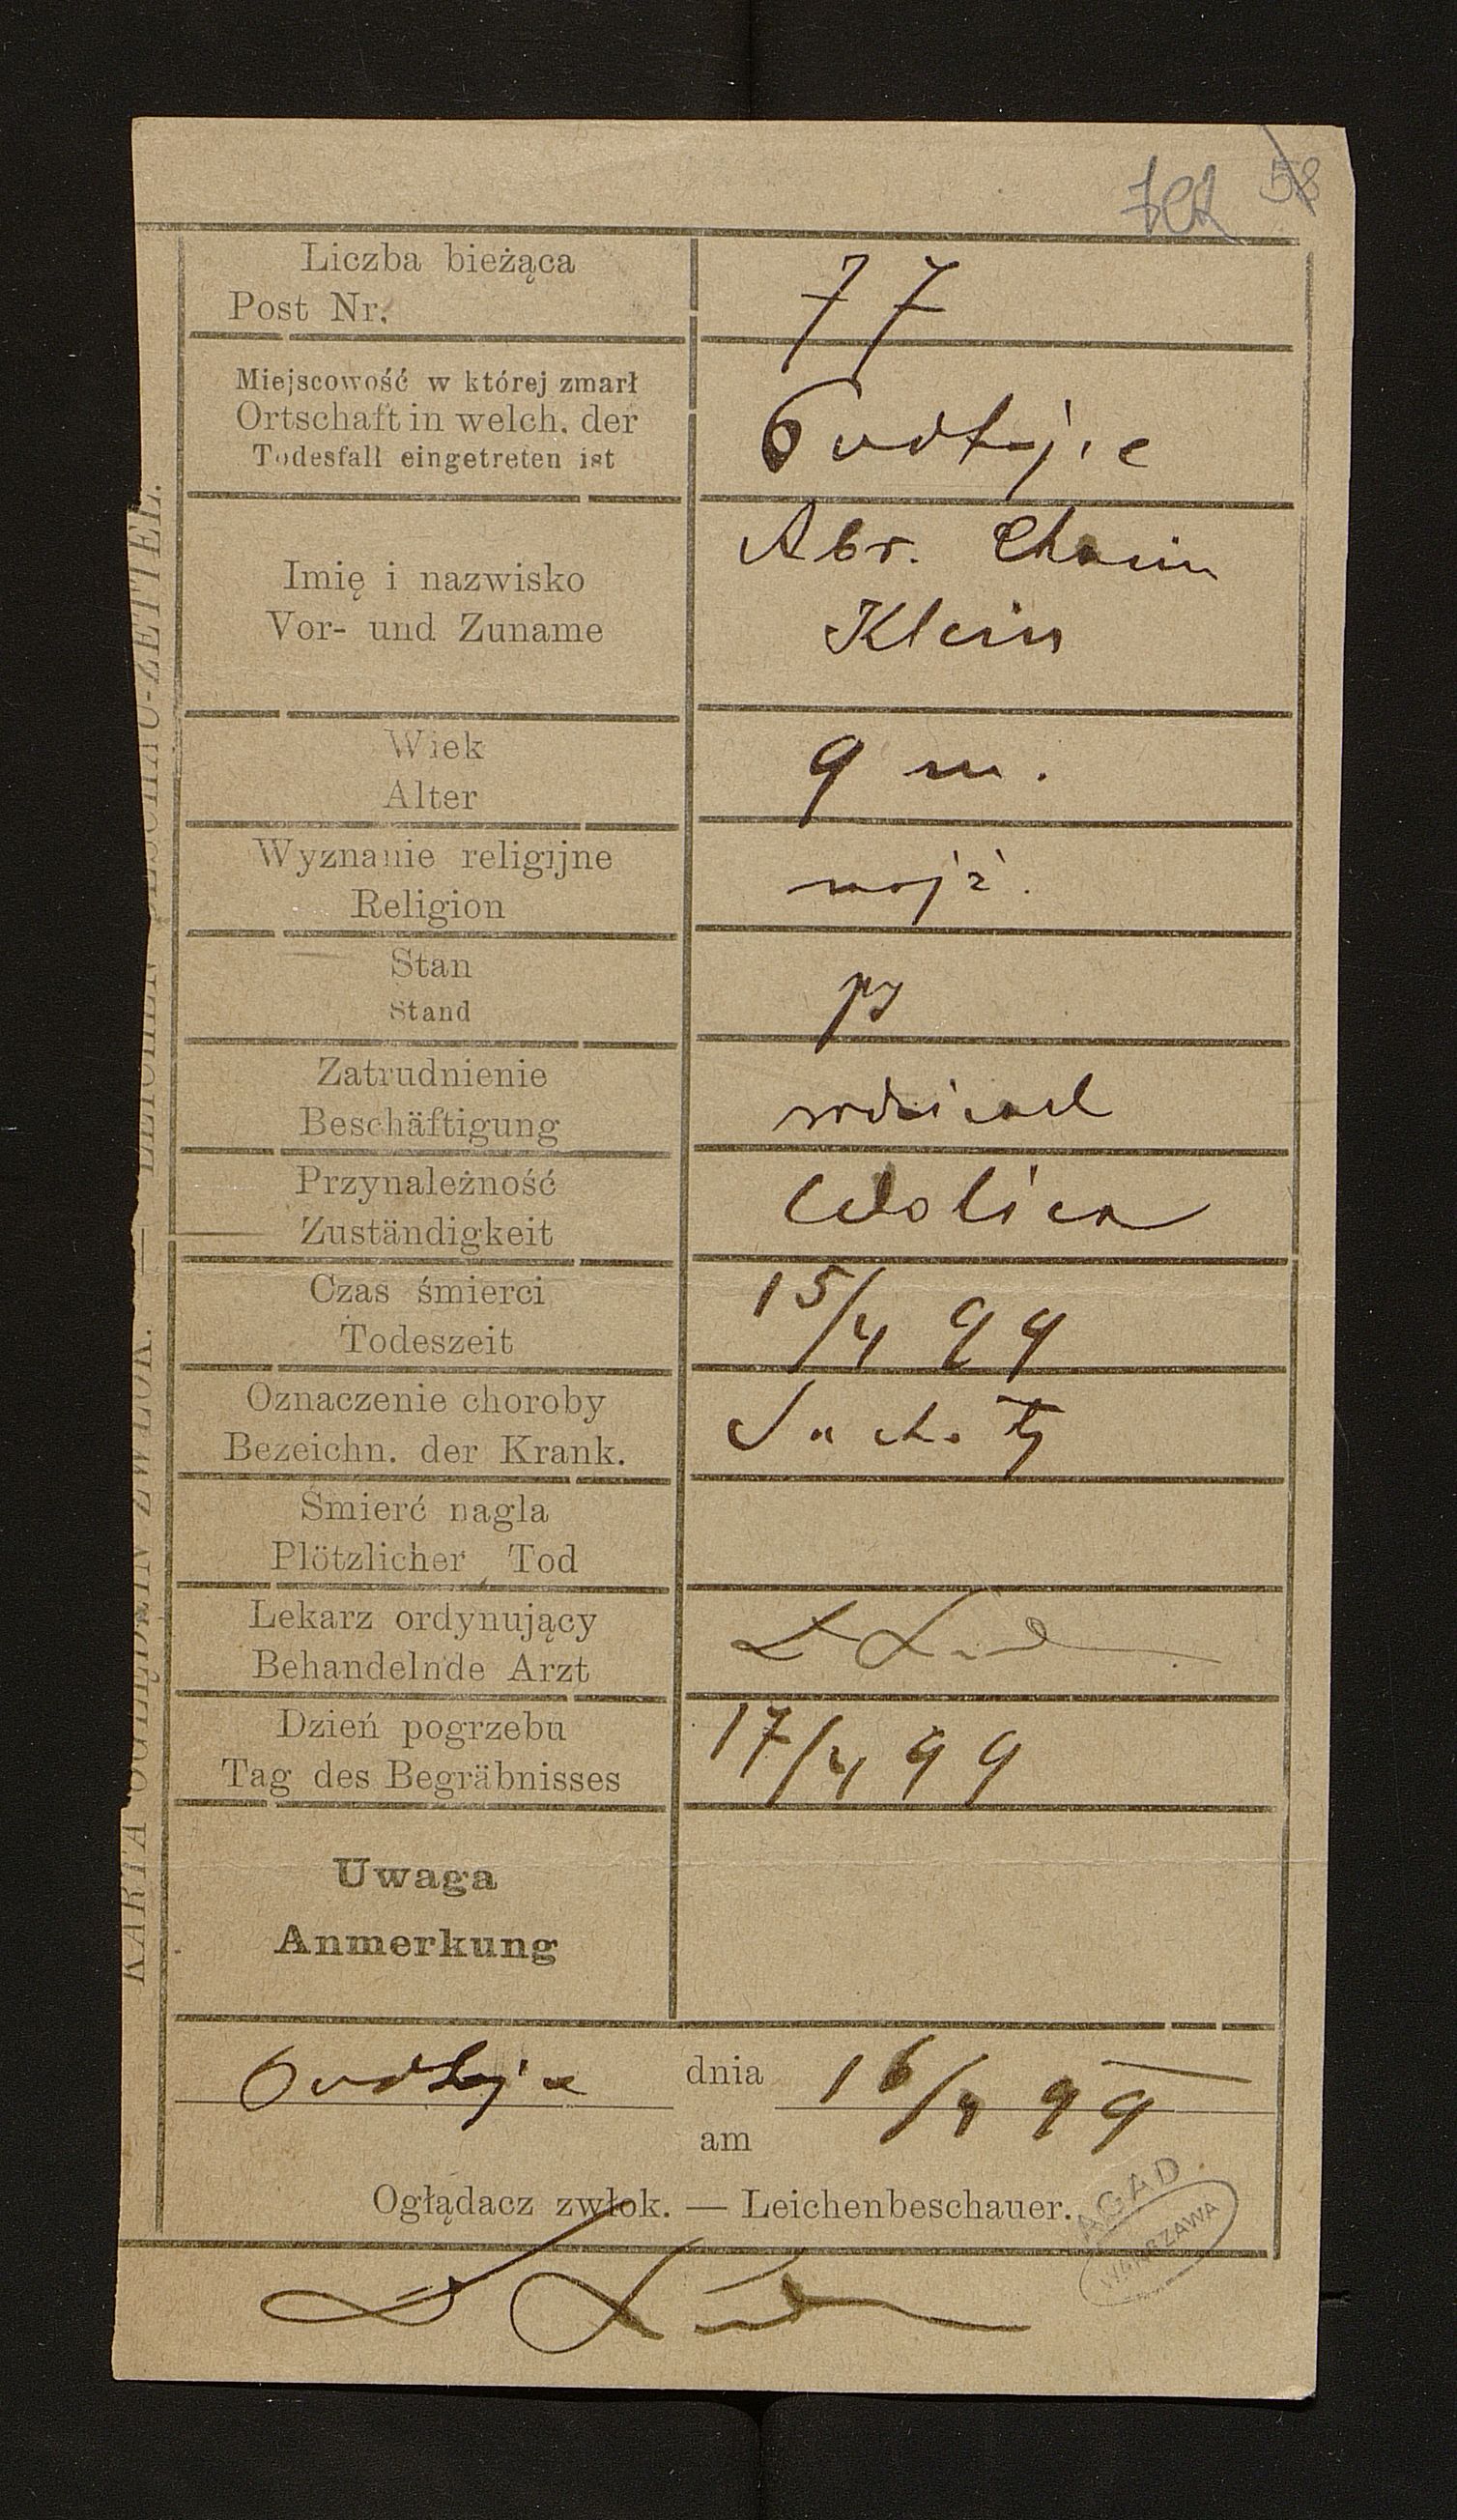 58
Liczba bieżąca
Post Nr.
77
Miejscowość w której zmarł
Ortschaft in welch. der
Todesfall eingetreten ist
Imię i nazwisko
Vor- und Zuname
Abr. Chaim
Klein
Wiek
Alter
9 m.
Wyznanie religijne
Religion
mojż.
Stan
Stand
py
Zatrudnienie
Beschäftigung
rodzicach
Przynależność
Zuständigkeit
Wolica
Czas śmierci
Todeszeit
15/4 99
Oznaczenie choroby
Bezeichn. der Krank.
Suchoty
Śmierć nagla
Plötzlicher Tod
Lekarz ordynujący
Behandelnde Arzt
Dzień pogrzebu
Tag des Begräbnisses
17/4 99
Uwaga
Anmerkung
dnia 16/4 99
am
Oglądacz zwłok. — Leichenbeschauer.
AGAD
WARSZAWA
KARTA OGLĘDZIN ZWŁOK. — LEICHEN-BESCHAU-ZETTEL.